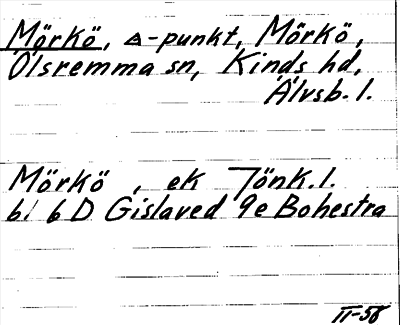 Mörkö, △-punkt, Mörkö,
Ölsremma sn, Kinds hd,
Älvsb. l.
Mörkö , ek Jönk. l.
bl 6 D Gislaved 9e Bohestra
II-58